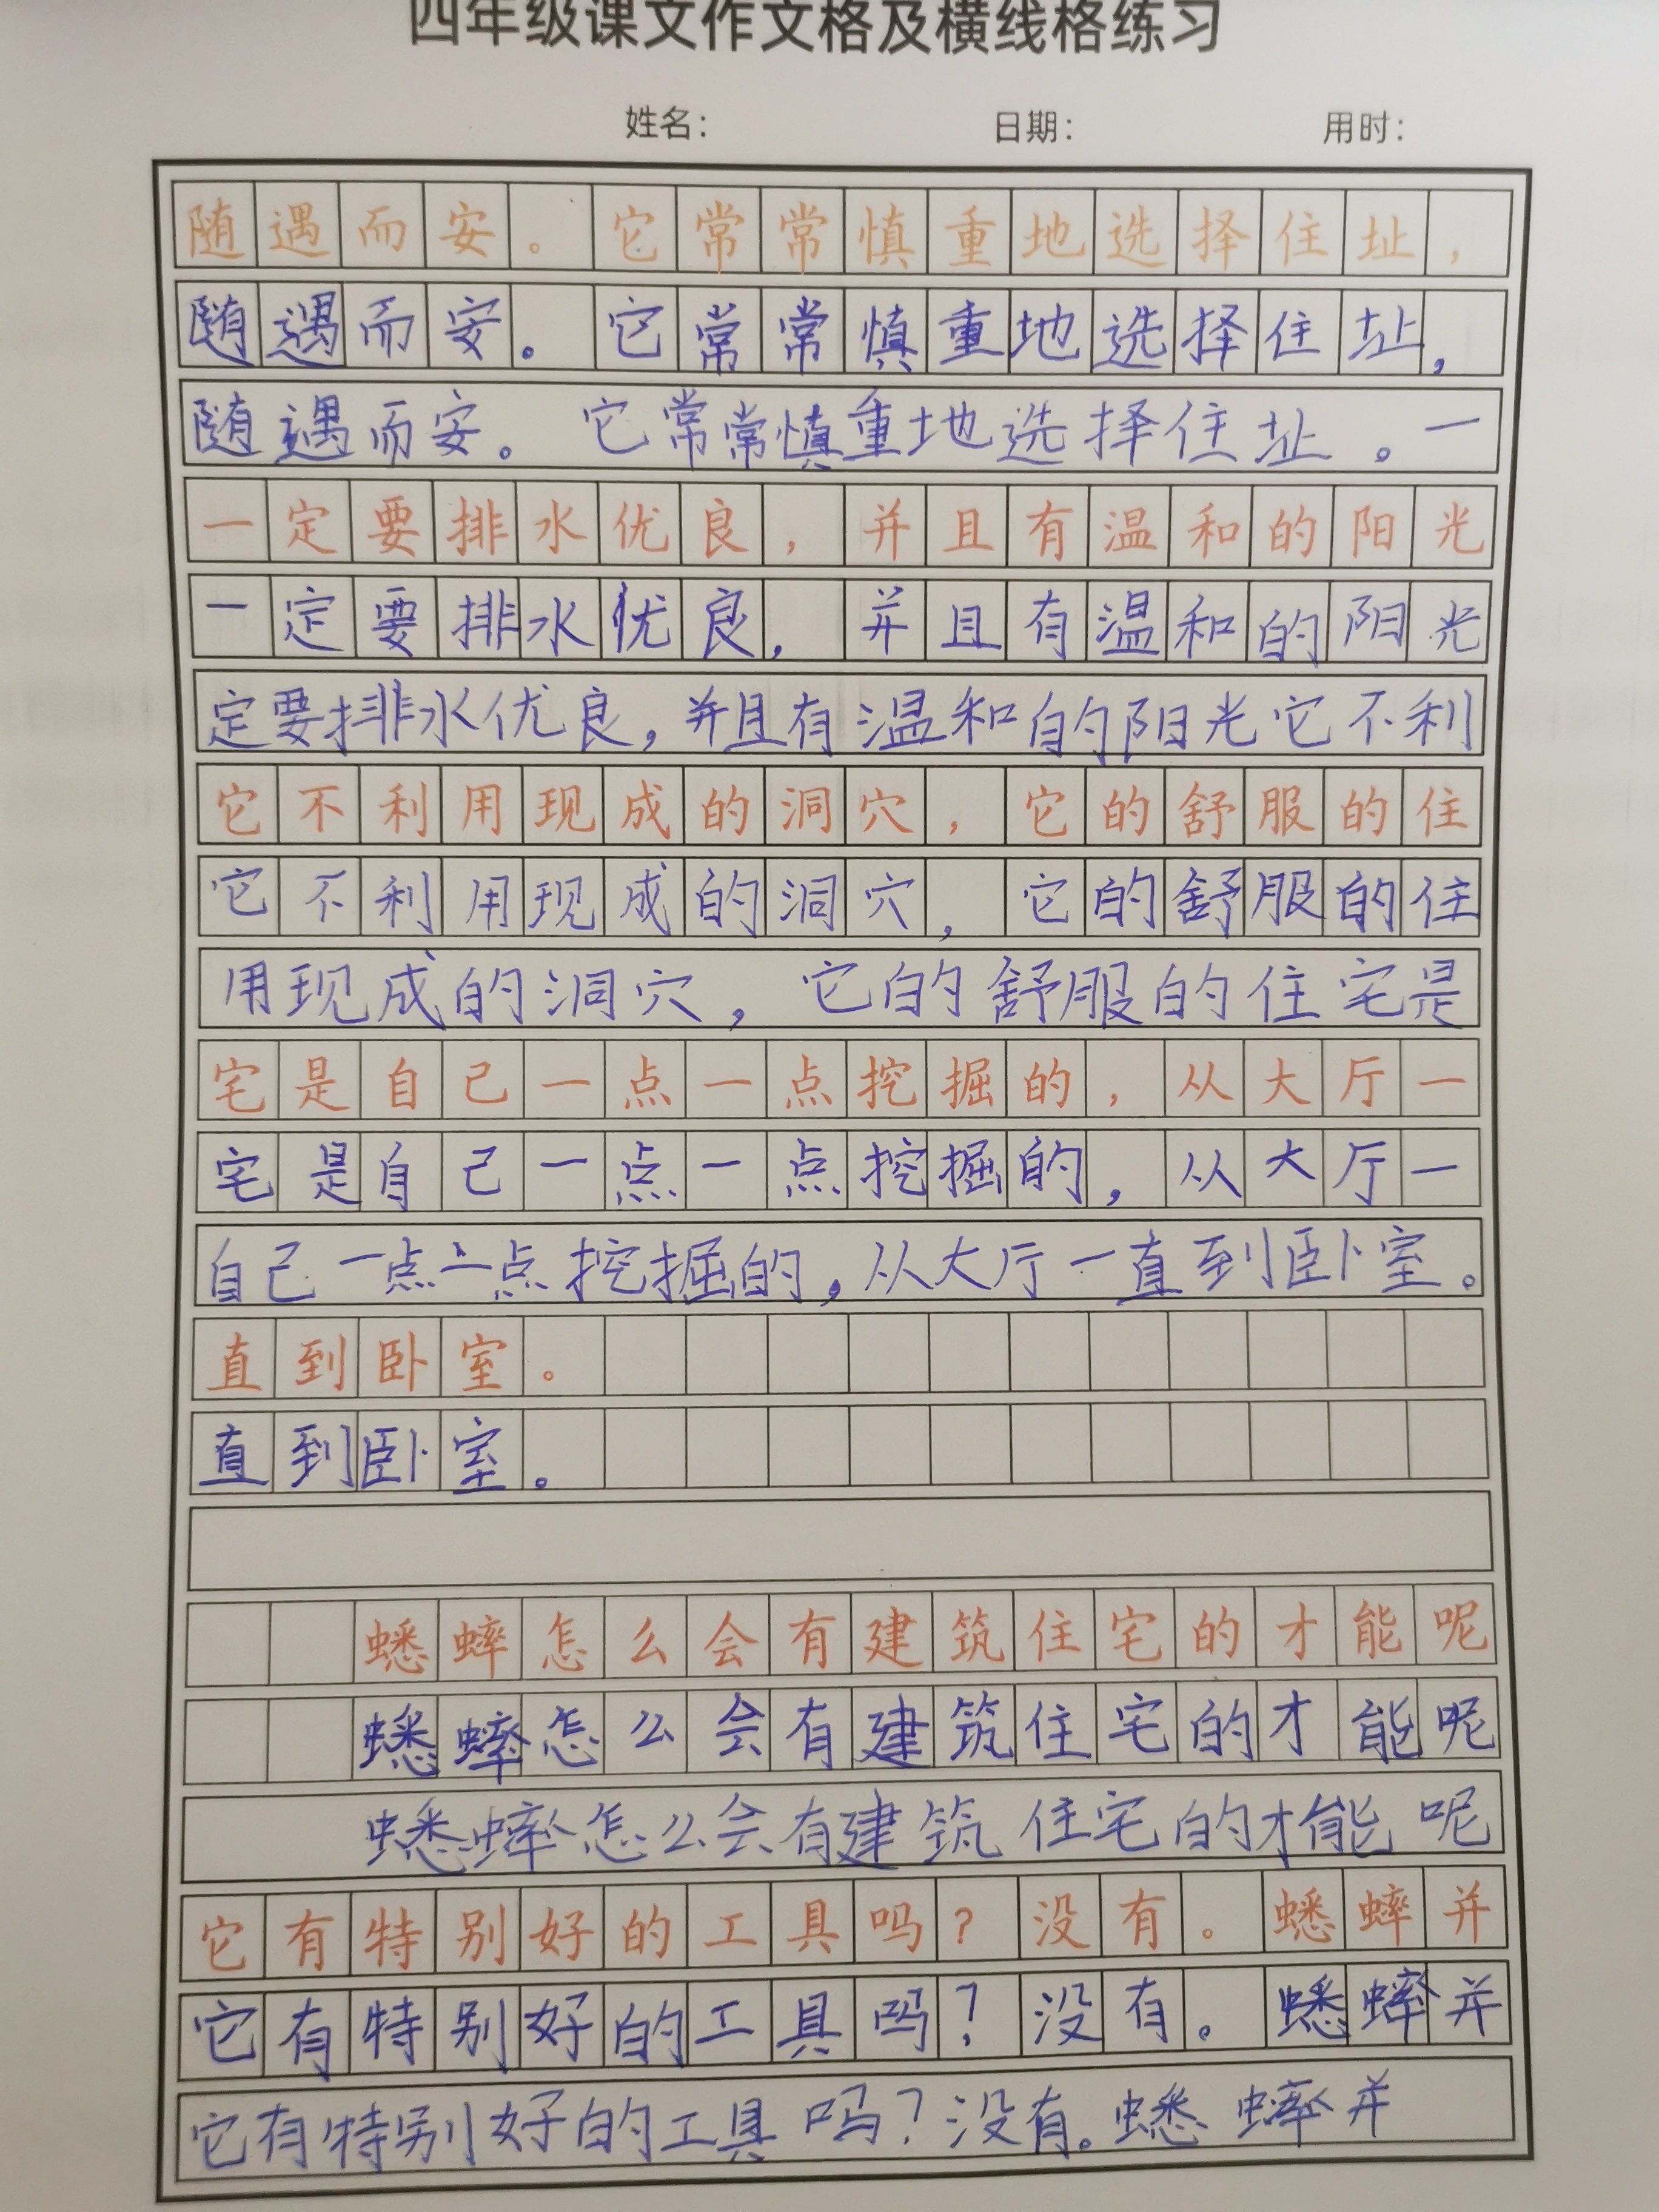 四年级课文作文格及横线格练习
姓名： 日期： 用时：
随遇而安。它常常慎重地选择住址，
随遇而安。它常常慎重地选择住址，
随遇而安。它常常慎重地选择住址。一
一定要排水优良，并且有温和的阳光
一定要排水优良，并且有温和的阳光
定要排水优良，并且有温和的阳光它不利
它不利用现成的洞穴，它的舒服的住
它不利用现成的洞穴，它的舒服的住
用现成的洞穴，它的舒服的住宅是
宅是自己一点一点挖掘的，从大厅一
宅是自己一点一点挖掘的，从大厅一
自己一点一点挖掘的，从大厅一直到卧室。
直到卧室。
直到卧室。
蟋蟀怎么会有建筑住宅的才能呢
蟋蟀怎么会有建筑住宅的才能呢
蟋蟀怎么会有建筑住宅的才能呢
它有特别好的工具吗？没有。蟋蟀并
它有特别好的工具吗？没有。蟋蟀并
它有特别好的工具吗？没有。蟋蟀并